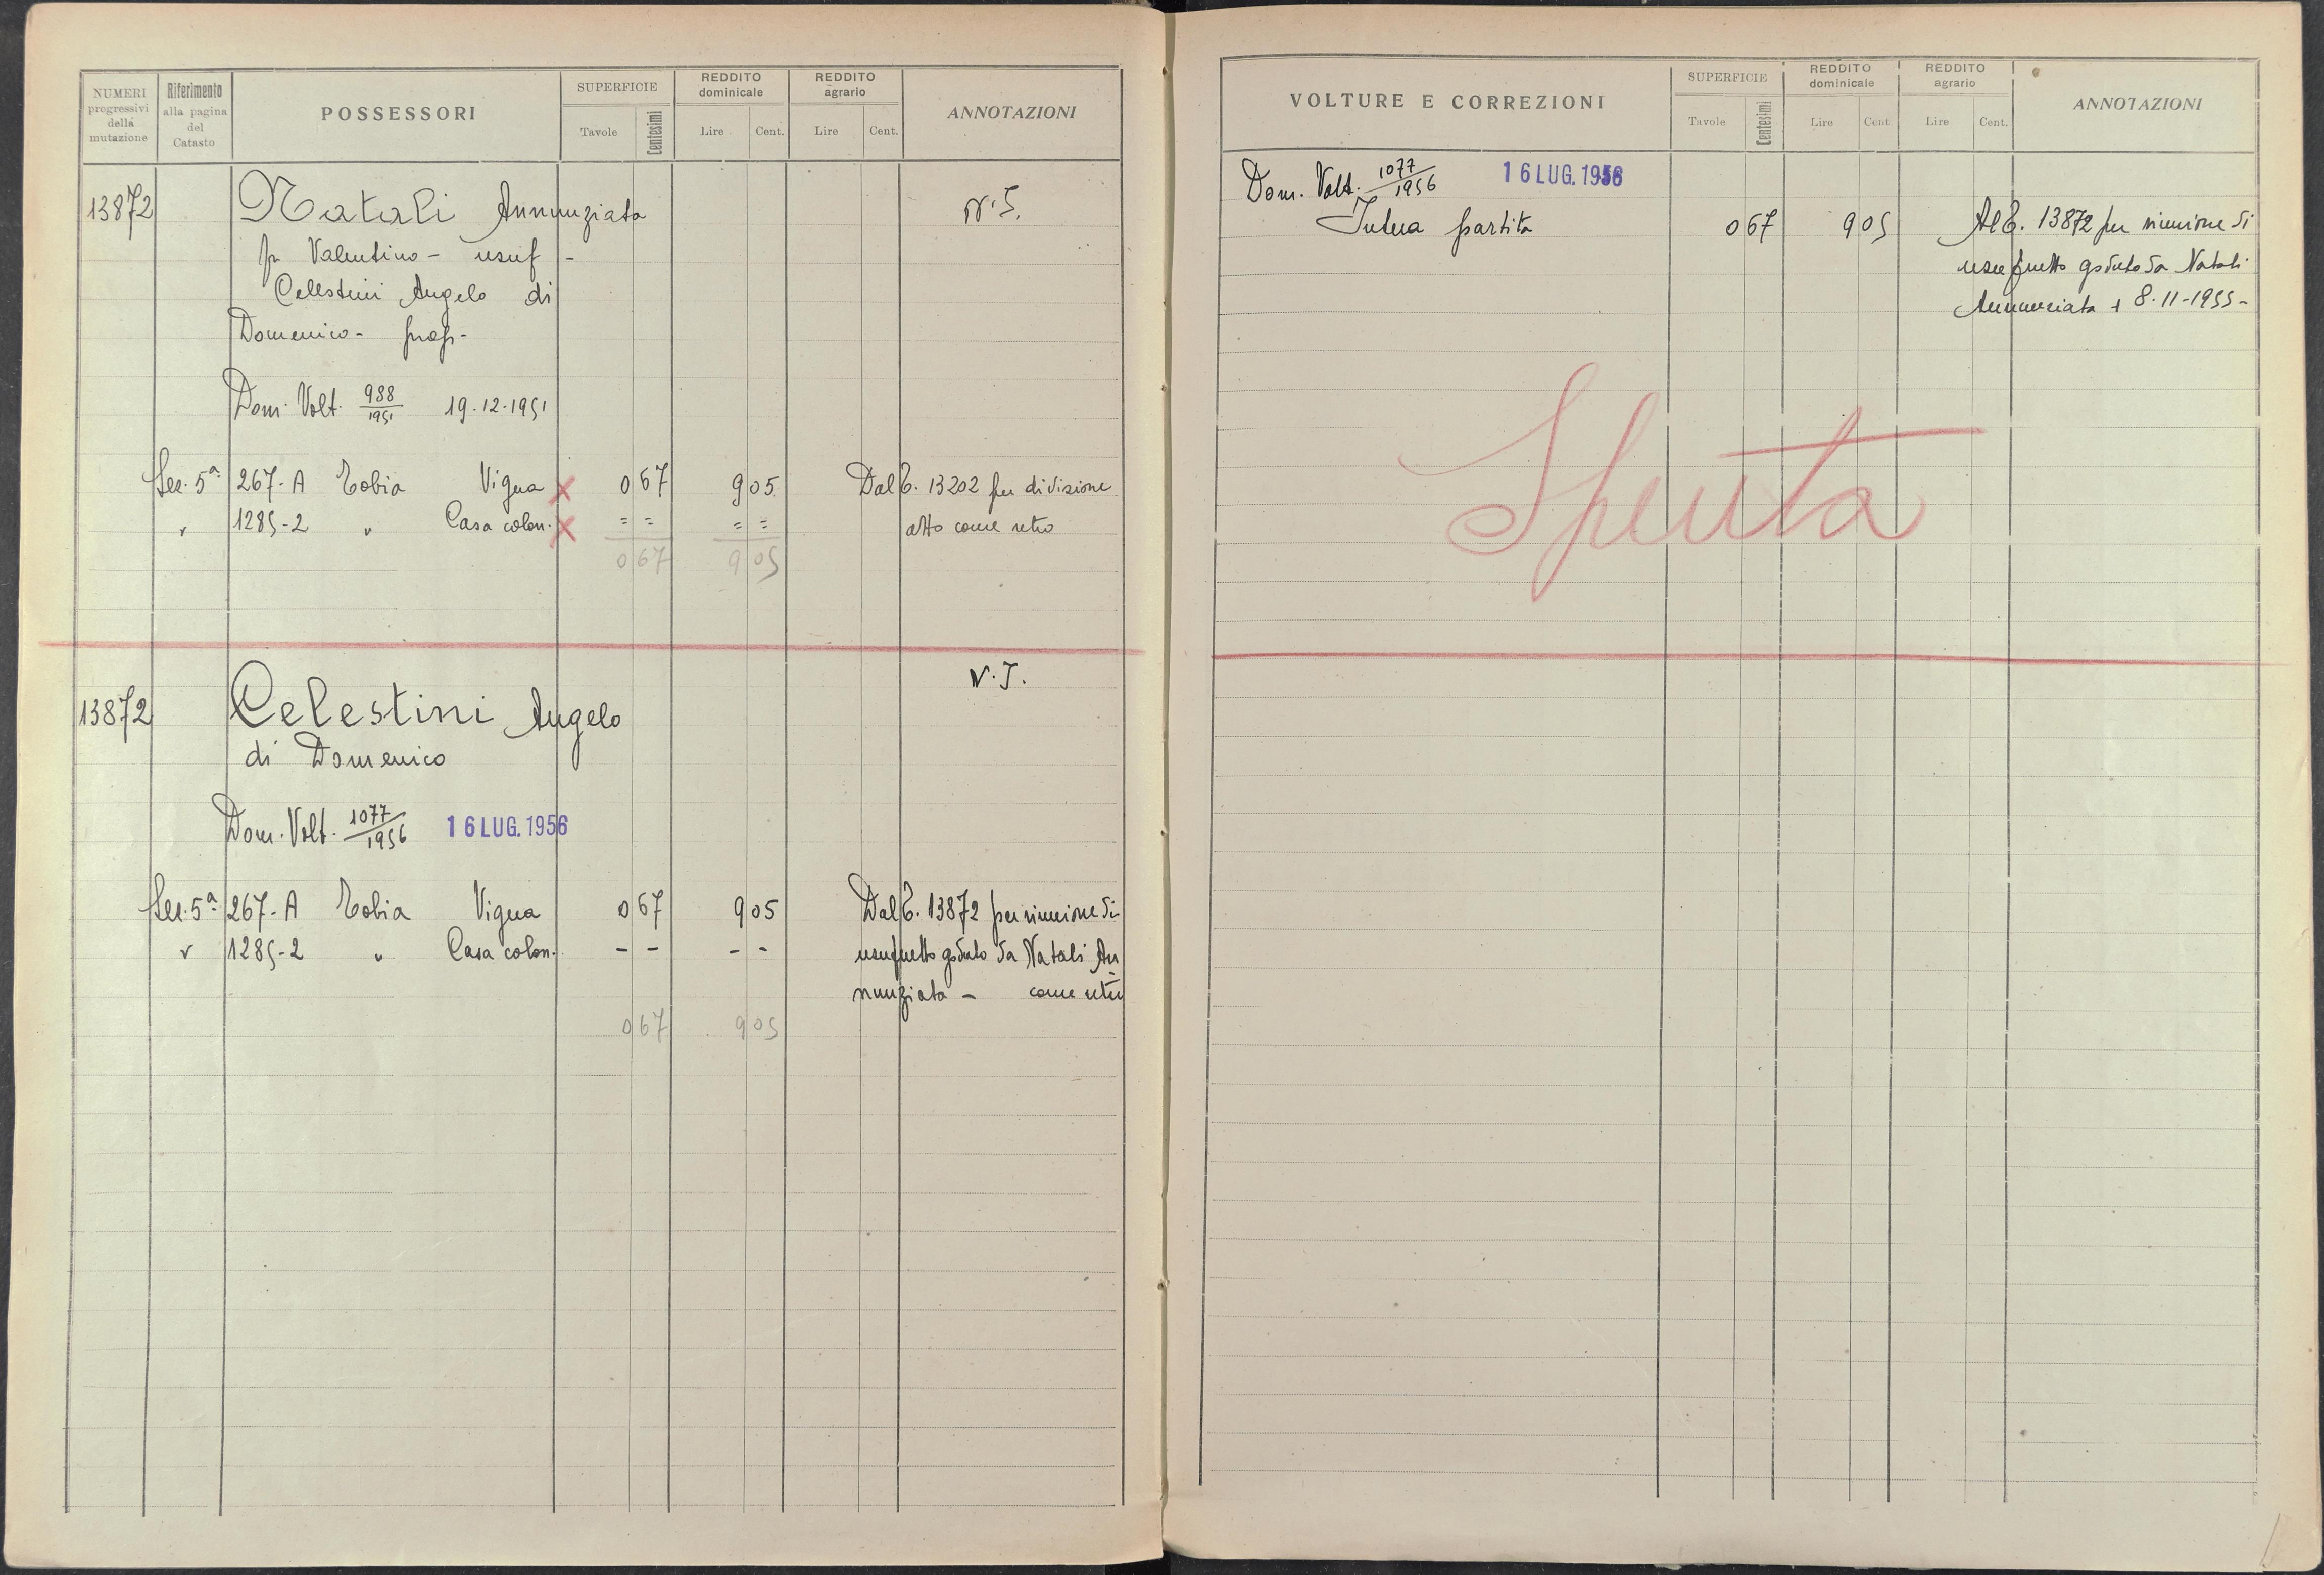 NUMERI progressivi della mutazione
Riferimento alla pagina del Catasto
POSSESSORI
SUPERFICIE
Tavole Centesimi
REDDITO dominicale
Lire Cent.
REDDITO agrario
Lire Cent.
ANNOTAZIONI
13872 Natali Annunziata N.I.
fu Valentino - usuf -
Celestini Angelo di
Domenico - prop -
Dom. Volt. 988/1951 19.12.1951
Sez. 5ª 267-A Tobia Vigna x 0 67 9 05 Dal C. 13202 per divisione
" 1285-2 " Casa colon. x = = = = atto come retro
0 67 9 05
N.I.
13872 Celestini Angelo
di Domenico
Dom. Volt. 1077/1956 16 LUG. 1956
Sez. 5ª 267-A Tobia Vigna 0 67 9 05 Dal C. 13872 per riunione di
" 1285-2 " Casa colon. - - - - usufrutto goduto da Natali An
nunziata - come retro
0 67 9 05
VOLTURE E CORREZIONI
SUPERFICIE
Tavole Centesimi
REDDITO dominicale
Lire Cent.
REDDITO agrario
Lire Cent.
ANNOTAZIONI
Dom. Volt. 1077/1956 16 LUG. 1956
Intera partita 0 67 9 05 Al C. 13872 per riunione di
usufrutto goduto da Natali
Annunziata + 8-11-1955-
Spenta